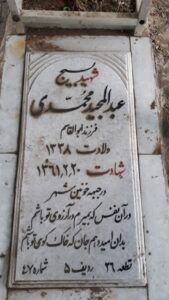 شهید بسیج
عبدالمجید محمدی
فرزند ابوالقاسم
ولادت ۱۳۳۸
شهادت ۱۳۶۱،۲،۲۰
درجبهه خونین شهر
در آن نفس که بمیرم در آرزوی تو باشم
بدان امید دهم جان که خاک کوی تو باشم
قطعه ۲۶ ردیف ۵ شماره ۴۷